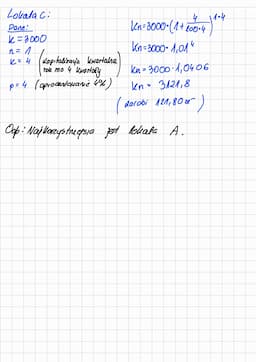 Lokata C:
Dane:
K = 3000
n = 1
k = 4 (kapitalizacja kwartalna, rok ma 4 kwartały)
p = 4 (oprocentowanie 4%)
Kn=3000·(1+4/100·4)^1·4
Kn=3000·1,01^4
Kn=3000·1,0406
Kn=3121,8
(zarobi 121,80 zł)
Odp: Najkorzystniejsza jest lokata A.